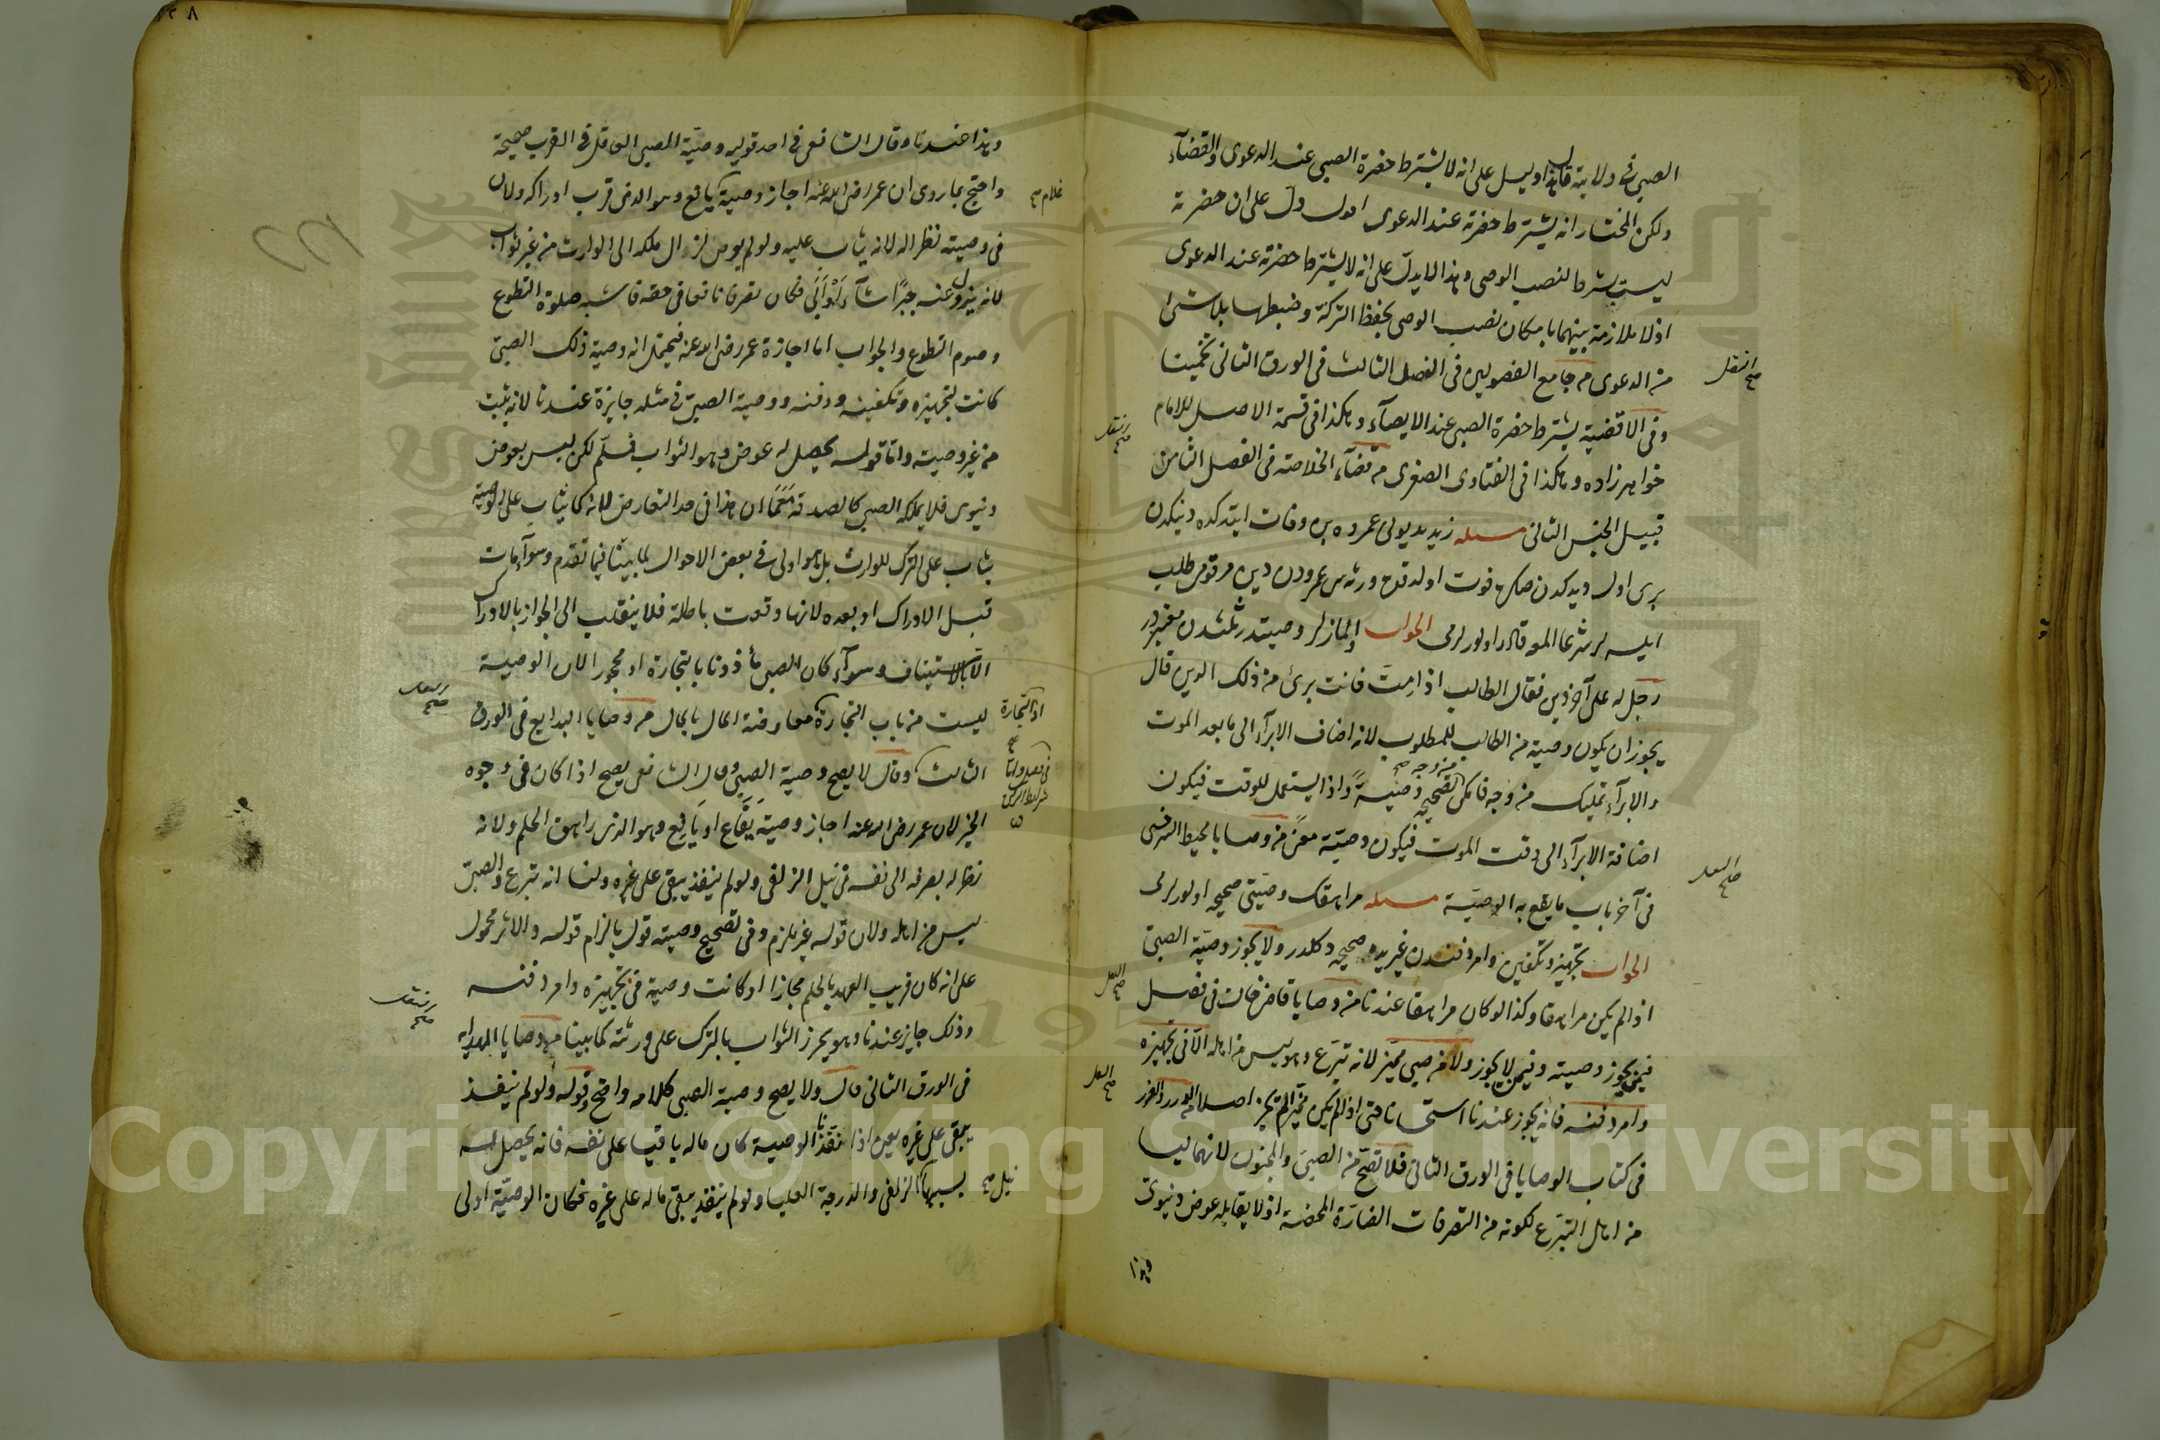 الصبي في ولايته قال هذا دليل على انه لا يشترط حضرة الصبي عند الدعوى والقضآء
ولكن المختار انه يشترط حضرته عند الدعوى اقول دل على ان حضرته
ليست بشرط لنصب الوصي وهذا لا يدل على انه لا يشترط حضرته عند الدعوى
اذ لا ملازمة بينهما بامكان نصب الوصي بحفظ التركة وضبطها بلا شئ
من الدعوى من جامع الفصولين في الفصل الثالث في الورق الثاني تخمينا
وفي الاقضية يشترط حضرة الصبي عند الايصآء وهكذا في قسمة الاصل للامام
خواهر زاده وهكذا في الفتاوى الصغرى من قضآء الخلاصة في الفصل الثامن
قبيل الجنس الثاني مسئله زيد مديونى عمروه بن وفات ايتدكده ذمتكدن
برى اول ديدكدن صكره فوت اولدقده ورثه سى عمرودن دين مرقومى طلب
ايلسه لر شرعا المغه قادر اولورلرمى الجواب المازلر وصيتدر ثلثدن معتبردر
رجل له على آخر دين فقال الطالب اذا مت فانت برئ من ذلك الدين قال
يجوز ان يكون وصية من الطالب للمطلوب لانه اضاف الابرآء الى ما بعد الموت
والابرآء تمليك من وجه فامكن تصحيحه وصية واذا يستعمل للوقت فيكون
اضافة الابرآء الى وقت الموت فيكون وصية معنى من وصايا محيط السرخسى
في آخر باب ما يقع به الوصية مسئله مراهقك وصيتى صحيحه اولورمى
الجواب تجهيز وتكفين وامر دفنندن غيريده صحيحه دكلدر ولا يجوز وصية الصبى
اذا لم يكن مراهقا وكذا لو كان مراهقا عندنا من وصايا قاضيخان في فصل
فيمن يجوز وصيته وفيمن لا يجوز ولا من صبى مميز لانه تبرع وهو ليس من اهله الا في تجهيزه
وامر دفنه فانه يجوز عندنا استحسانا حتى اذا لم يكن مميزا لم تجز اصلا من الدرر والغرر
في كتاب الوصايا في الورق الثاني فلا تصح من الصبى والمجنون لانهما ليسا
من اهل التبرع لكونه من التصرفات الضارة المحضة اذ لا يقابله عوض دنيوى
وهذا
وهذا عندنا وقال الشافعى في احد قوليه وصية الصبى العاقل في القرب صحيحة
واحتج بما روى ان عمر رضى الله عنه اجاز وصية يافع وهو الذى قرب ادراكه ولان
في وصيته نظرا له لانه يثاب عليه ولو لم يوص لزال ملكه الى الوارث من غير ثواب
لانه يزول عنه جبرا شآء او ابى فكان تصرفا نافعا في حقه فاشبه صلوة التطوع
وصوم التطوع والجواب اما اجازة عمر رضى الله عنه فيحتمل انه وصية ذلك الصبى
كانت لتجهيزه وتكفينه ودفنه ووصية الصبى في مثله جايزة عندنا لانه يثبت
من غير وصية واما قوله يحصل له عوض وهو الثواب فسلم لكن ليس بعوض
دنيوى فلا يملكه الصبى كالصدقة مع ما ان هذا في حد التعارض لانه كما يثاب على الوصية
يثاب على الترك للوارث بل هو اولى في بعض الاحوال لما بينا فيما تقدم وسوآء مات
قبل الادراك او بعده لانها وقعت باطلة فلا ينقلب الى الجواز بالادراك
الا بالاستيناف وسوآء كان الصبى مأذونا بالتجارة او محجورا لان الوصية
ليست من باب التجارة معاوضة المال بالمال من وصايا البدايع في الورق
الثالث وقال لا يصح وصية الصبى وقال الشافعى يصح اذا كان في وجوه
الخير لان عمر رضى الله عنه اجاز وصية يفاع او يافع وهو الذى راهق الحلم ولانه
نظر له بصرفه الى نفسه في نيل الزلفى ولو لم ينفذ يبقى على غيره ولنا انه تبرع والصبى
ليس من اهله ولان قوله غير ملزم وفي تصحيح وصيته قول بالزام قوله والاثر محمول
على انه كان قريب العهد بالحلم مجازا او كانت وصية في تجهيزه وامر دفنه
وذلك جايز عندنا وهو يحرز الثواب بالترك على ورثته كما بينا من وصايا الهداية
في الورق الثاني قال ولا يصح وصية الصبى كلامه واضح وقوله ولو لم ينفذ
يبقى على غيره يعنى اذا نفذنا الوصية كان ماله باقيا على نفسه فانه يحصل له
بسببها الزلفى والدرجة العليا ولو لم ينفذ يبقى ماله على غيره فكان الوصية اولى
غلام صح
اذ التجارة صح
نيل صح
Copyright © King Saud University